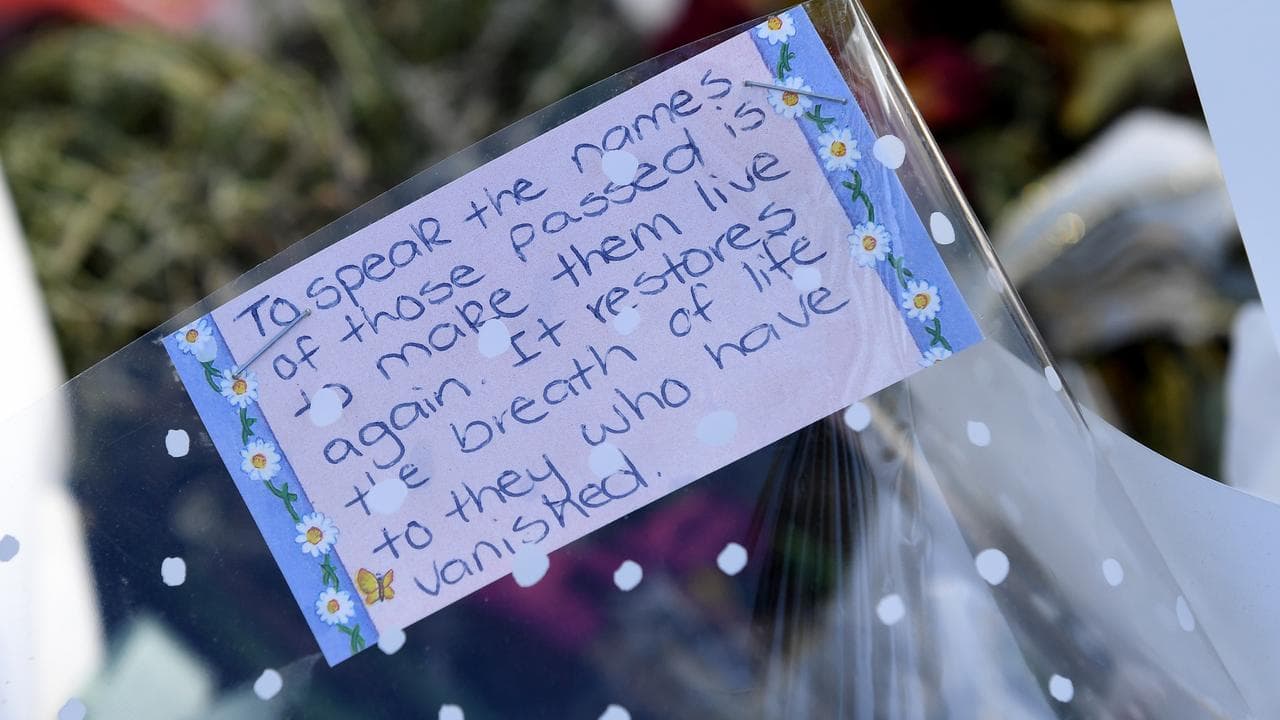 To speak the names
of those passed is
to make them live
again. It restores
the breath of life
to they who have
vanished.